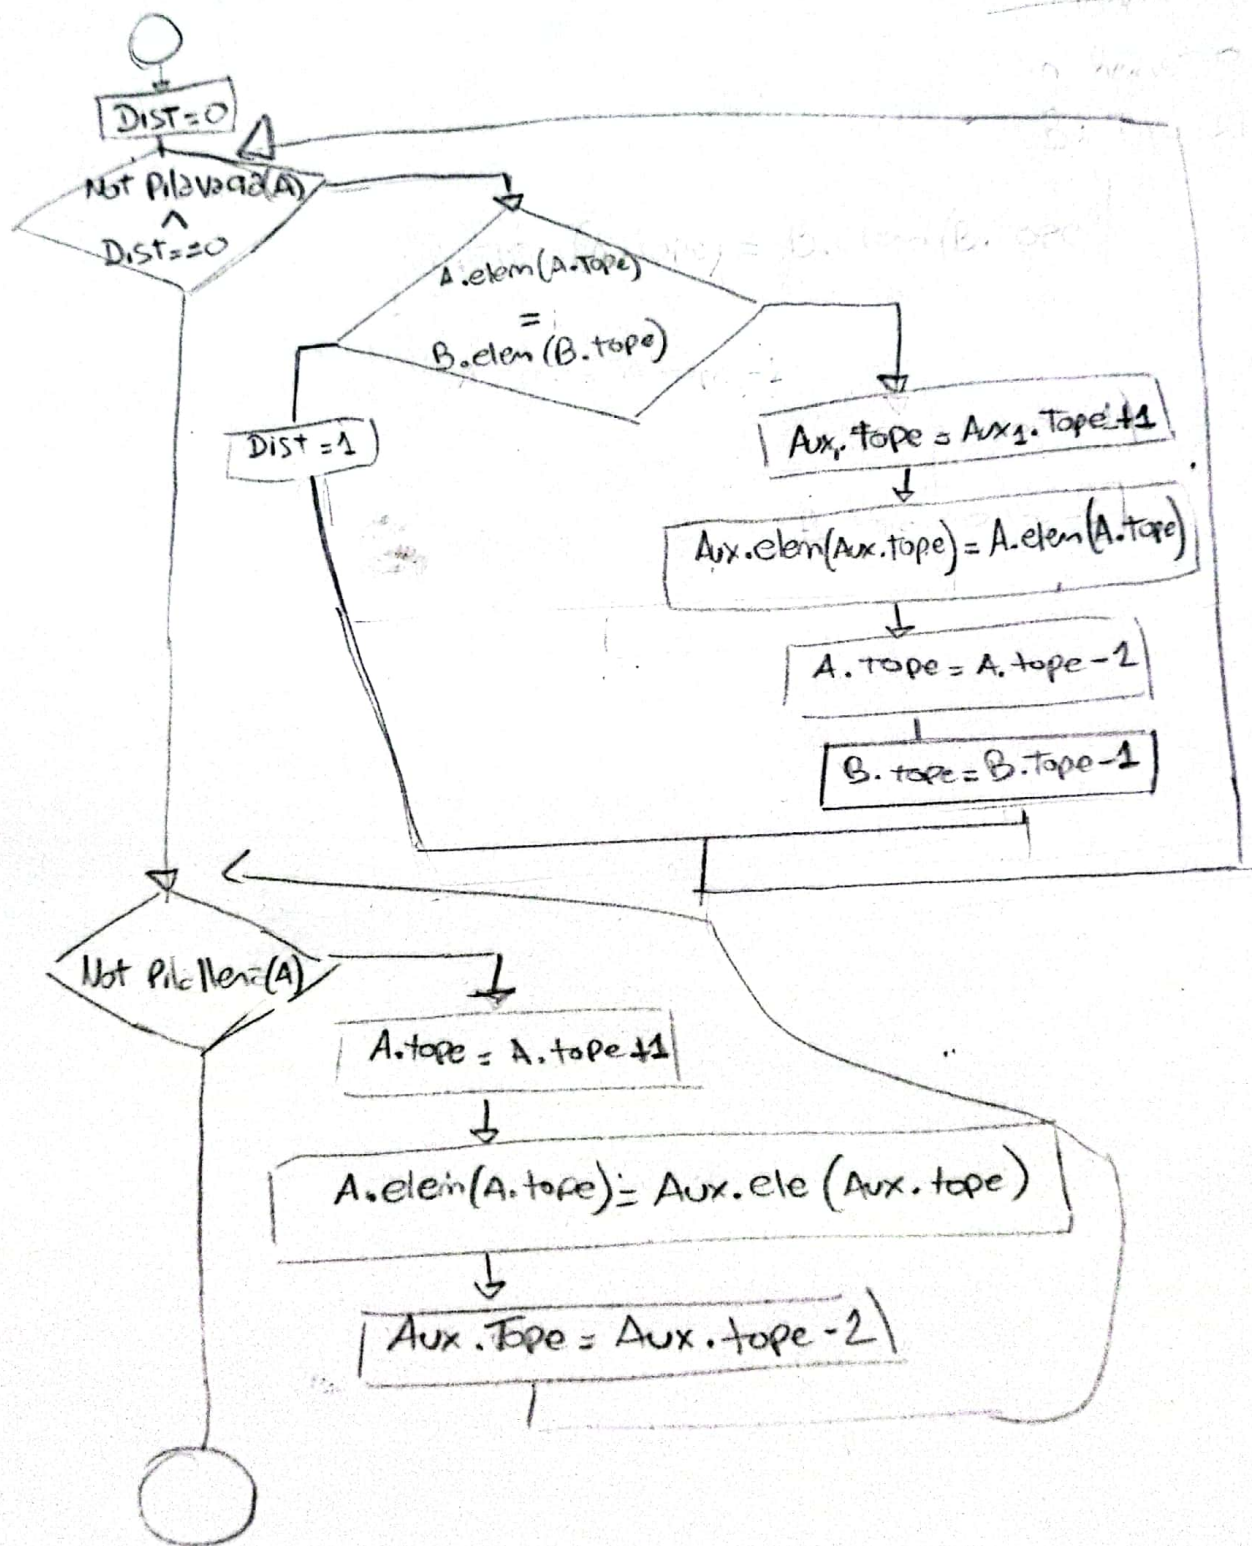 Dist=0
Not Pilavacia(A)
^
Dist==0
A.elem(A.Tope)
=
B.elem(B.tope)
Dist=1
Aux1.Tope=Aux1.Tope+1
Aux.elem(Aux.tope)=A.elem(A.tope)
A.Tope=A.tope-1
B.tope=B.Tope-1
Not Pilallena(A)
A.tope=A.tope+1
A.elem(A.tope)=Aux.ele(Aux.tope)
Aux.Tope=Aux.tope-1